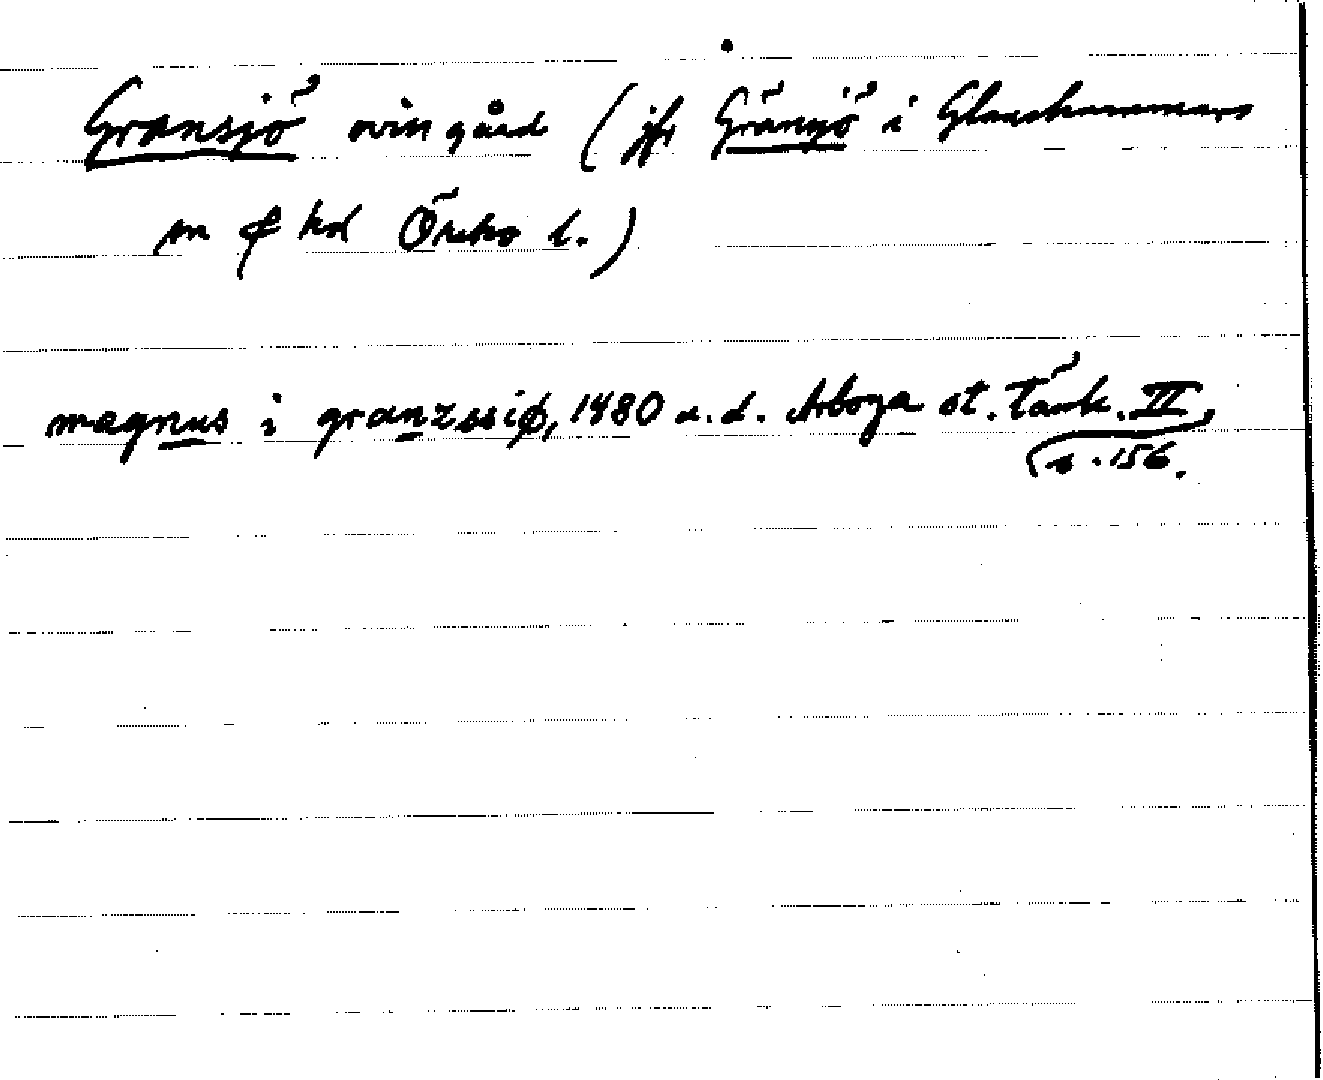 Gransjö ovin gård (jfr Gränsjö i Glanshammars
sn o hd Örebro l.)
magnus i granzssiø, 1480 a.d. Arboga st. tänk. II,
s. 156.